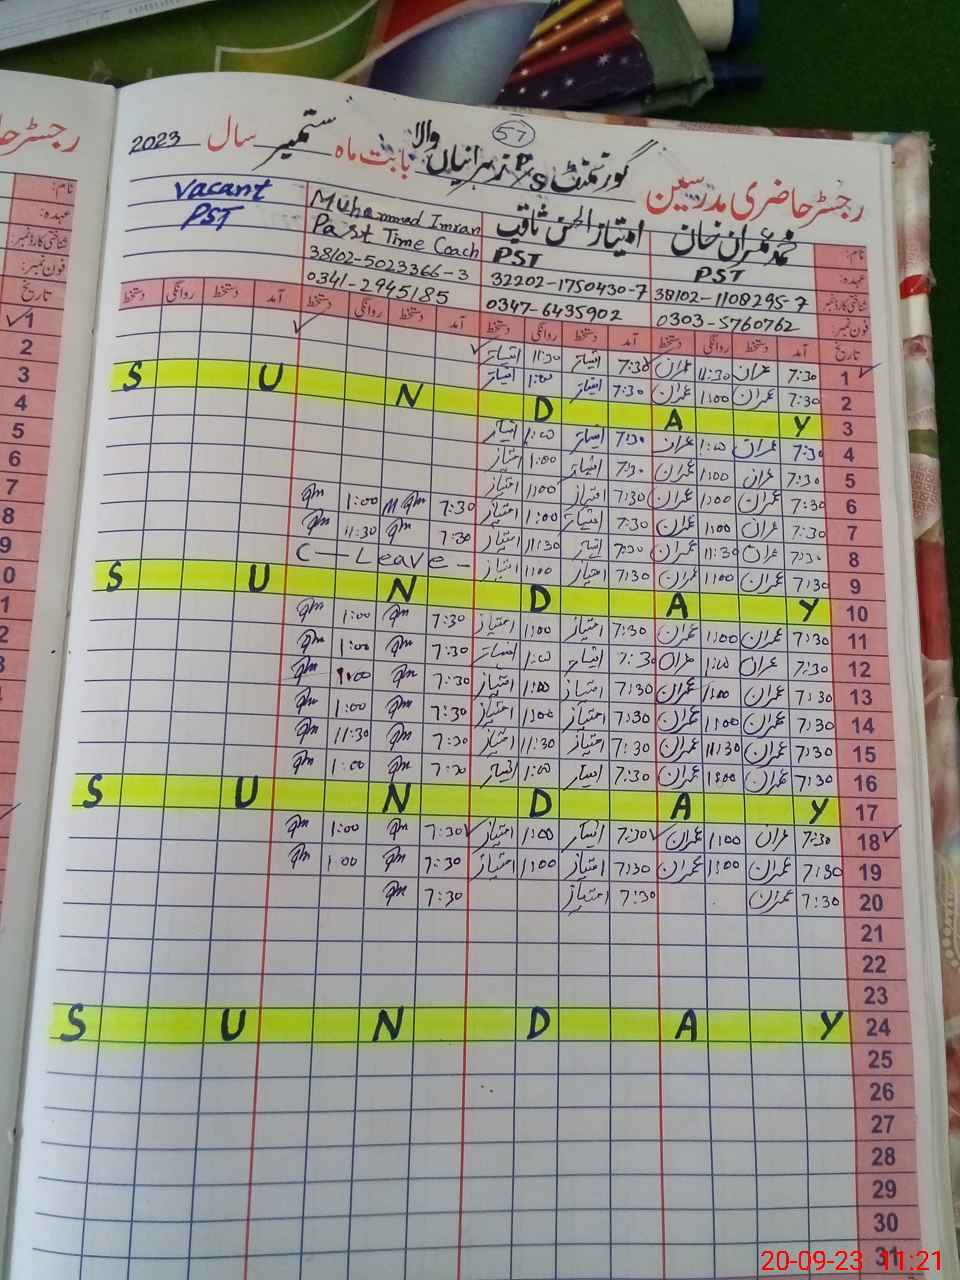 رجسٹر حاضری مدرسین گورنمنٹ P/S زہرانیاں والا بابت ماہ ستمبر سال 2023
57
محمد عمران خان
PST
38102-1108295-7
0303-5760762
امتیاز الحسن ثاقب
PST
32202-1750430-7
0347-6435902
Muhammed Imran
Past Time Coach
38102-5023366-3
0341-2945185
Vacant
PST
نام:
عہدہ:
شناختی کارڈ نمبر:
فون نمبر:
تاریخ آمد دستخط روانگی دستخط آمد دستخط روانگی دستخط آمد دستخط روانگی دستخط آمد دستخط روانگی دستخط
1 7:30 عمران 11:30 عمران 7:30 امتیاز 11:30 امتیاز
2 7:30 عمران 1:00 عمران 7:30 امتیاز 1:00 امتیاز
3 S U N D A Y
4 7:30 عمران 1:00 عمران 7:30 امتیاز 1:00 امتیاز
5 7:30 عمران 1:00 عمران 7:30 امتیاز 1:00 امتیاز
6 7:30 عمران 1:00 عمران 7:30 امتیاز 1:00 امتیاز
7 7:30 عمران 1:00 عمران 7:30 امتیاز 1:00 امتیاز 7:30 1:00
8 7:30 عمران 11:30 عمران 7:30 امتیاز 11:30 امتیاز 7:30 11:30
9 7:30 عمران 1:00 عمران 7:30 امتیاز 1:00 امتیاز C—Leave-
10 S U N D A Y
11 7:30 عمران 1:00 عمران 7:30 امتیاز 1:00 امتیاز 7:30 1:00
12 7:30 عمران 1:00 عمران 7:30 امتیاز 1:00 امتیاز 7:30 1:00
13 7:30 عمران 1:00 عمران 7:30 امتیاز 1:00 امتیاز 7:30 1:00
14 7:30 عمران 1:00 عمران 7:30 امتیاز 1:00 امتیاز 7:30 1:00
15 7:30 عمران 11:30 عمران 7:30 امتیاز 11:30 امتیاز 7:30 11:30
16 7:30 عمران 1:00 عمران 7:30 امتیاز 1:00 امتیاز 7:30 1:00
17 S U N D A Y
18 7:30 عمران 1:00 عمران 7:30 امتیاز 1:00 امتیاز 7:30 1:00
19 7:30 عمران 1:00 عمران 7:30 امتیاز 1:00 امتیاز 7:30 1:00
20 7:30 عمران 7:30 امتیاز 7:30
21
22
23
24 S U N D A Y
25
26
27
28
29
30
31
20-09-23 11:21